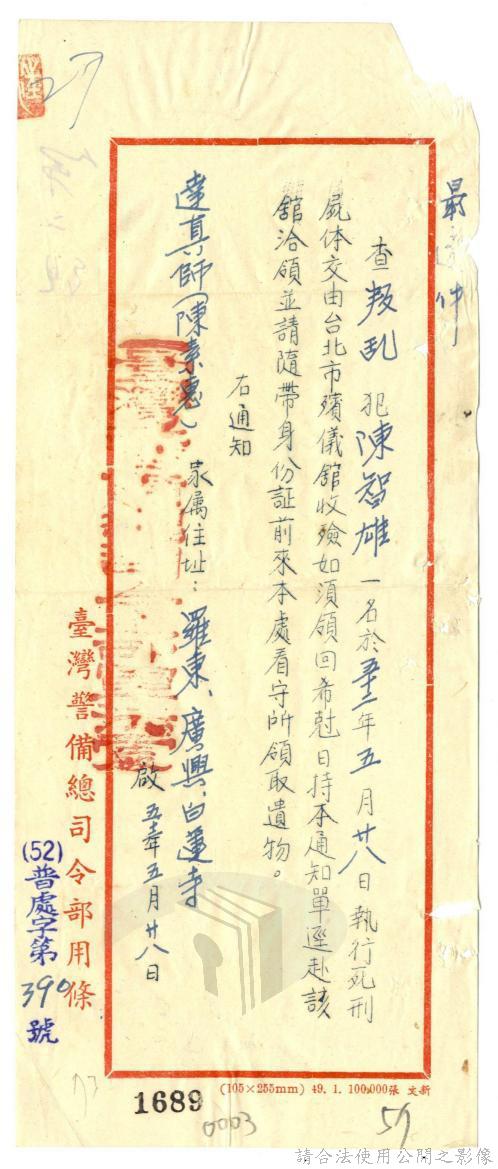 最速件
查叛乱犯陳智雄一名於五十二年五月廿八日執行死刑
屍体交由台北市殯儀館收殮如須領回希尅日持本通知單逕赴該
館洽領並請隨帶身份証前來本處看守所領取遺物。
右通知
達真師(陳素惠)家属住址：羅東、廣興、白蓮寺
啟 五十二年五月廿八日
臺灣警備總司令部用條
(52)普處字第390號
(105×255mm) 49. 1. 100,000張 文新
1689
0003
59
請合法使用公開之影像